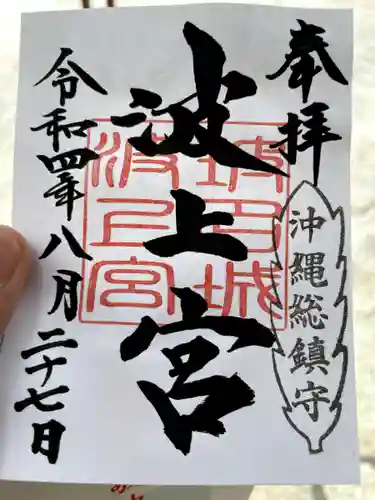 奉拝
沖縄総鎮守
波上宮
令和四年八月二十七日